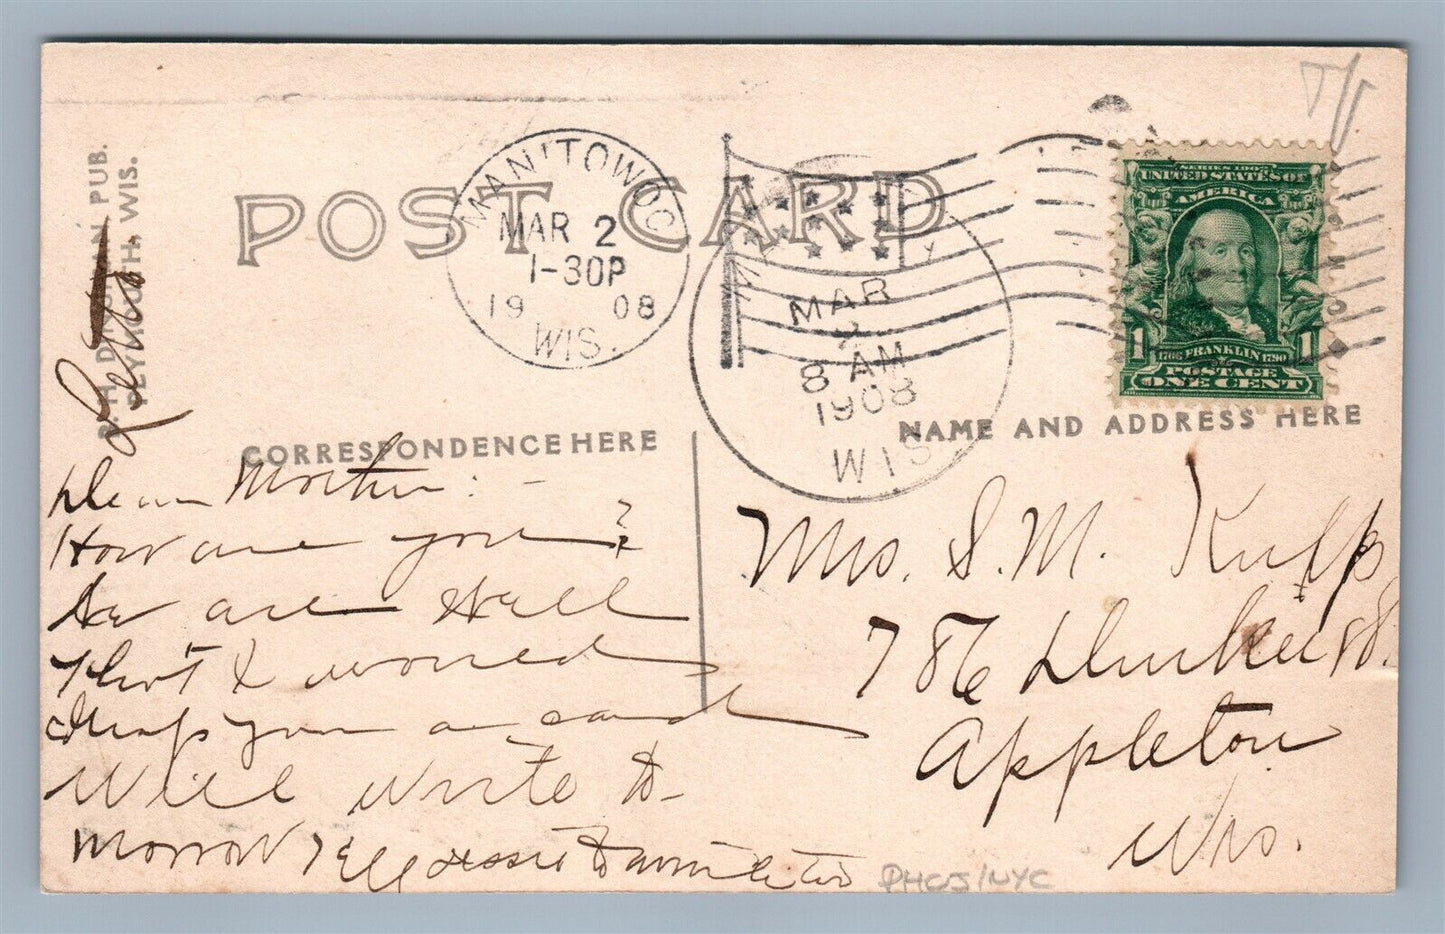 T/J
PUB.
PLYMOUTH. WIS.
POST CARD
MANITOWOC
MAR 2
1-30P
19 08
WIS.
MAR
2
8 AM
1908
WIS.
SERIES 1902
UNITED STATES OF
AMERICA
1 1
1706 FRANKLIN 1790
POSTAGE
ONE CENT
CORRESPONDENCE HERE
NAME AND ADDRESS HERE
Dear Mother: -
How are you?
We are Well
Thot I would
drop you a card
Will write to-
morrow Tell Jessie to write
letter
Mrs. S. M. Kulp,
786 St.
Appleton
Wis.
PHOJ/NYC